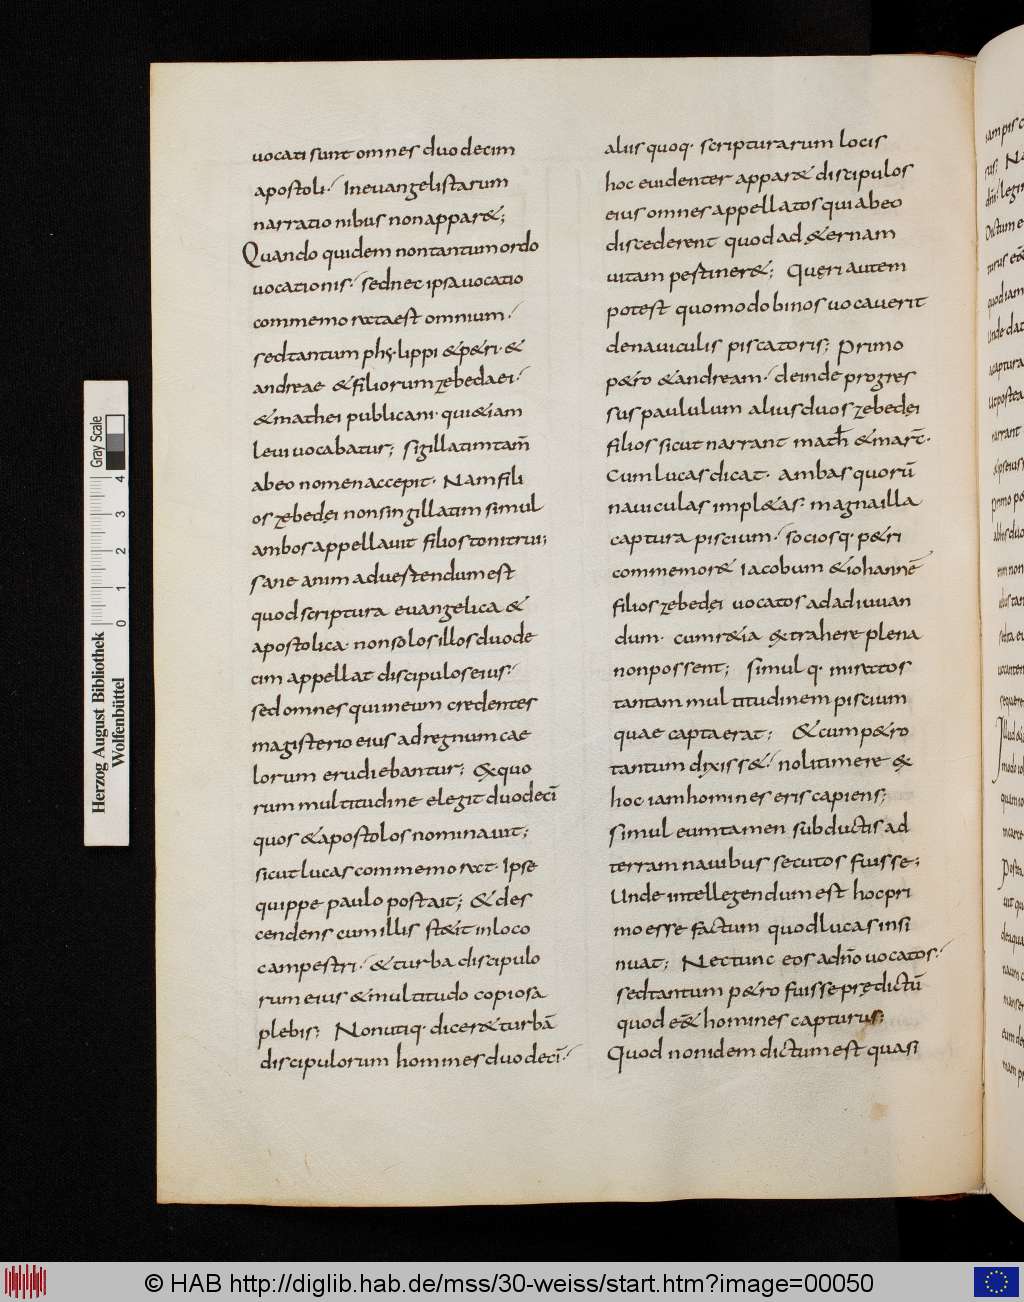 uocati sunt omnes duodecim
apostoli·/ In euangelistarum
narrationibus non apparet;
Quando quidem non tantum ordo
uocationis·/ sed nec ipsa uocatio
commemorata est omnium·/
sed tantum phylippi & p&ri· &
andreae &filiorum zebedaei·/
&mathei publicani· qui&iam
leui uocabatur; sigillatim tam̄
ab eo nomen accepit· Nam fili
os zebedęi non singillatim simul
ambos appellauit filios tonitrui;
sane animaduestendum est
quod scriptura euangelica &
apostolica· non solos illos duode
cim appellat discipulos eius·/
sed omnes qui in eum credentes
magisterio eius ad regnum cae
lorum erudiebantur; &quo
rum multitudine elegit duodecī
quos &apostolos nominauit;
sicut lucas commemorat· Ipse
quippe paulo post ait; & des
cendens cum illis st&it in loco
campestri·/ & turba discipulo
rum eius &multitudo copiosa
plebis; Non utiq· dicer& turbā
discipulorum homines duodecī·/
aliis quoq· scripturarum locis
hoc euidenter appar& discipulos
eius omnes appellatos qui ab eo
discederent quod ad &ernam
uitam pestiner&; Quęri autem
potest quomodo binos uocauerit
de nauiculis piscatoris; Primo
p&ro &andream·/ deinde progres
sus paululum alius duos zebedęi
filios sicut narrant math &marc̄·
Cum lucas dicat· ambas quorū
nauiculas impl&as· magna illa
captura piscium·/ sociosq· p&ri
commemor& iacobum &iohannē
filios zebedęi uocatos ad adiuuan
dum· cum r&ia &trahere plena
non possent; simul q· miratos
tantam multitudinem piscium
quae capta erat; & cum p&ro
tantum dixiss&·/ noli timere &
hoc iam homines eris capiens;
simul eum tamen subductis ad
terram nauibus secutos fuisse;
Unde intellegendum est hoc pri
mo esse factum quod lucas insi
nuat; Nec tunc eos a dn̄o uocatos·/
sed tantum p&ro fuisse prędictū
quod e& homines capturus;
Quod non idem dictum est quasi
Herzog August Bibliothek
Wolfenbüttel
Gray Scale
0 1 2 3 4
© HAB http://diglib.hab.de/mss/30-weiss/start.htm?image=00050